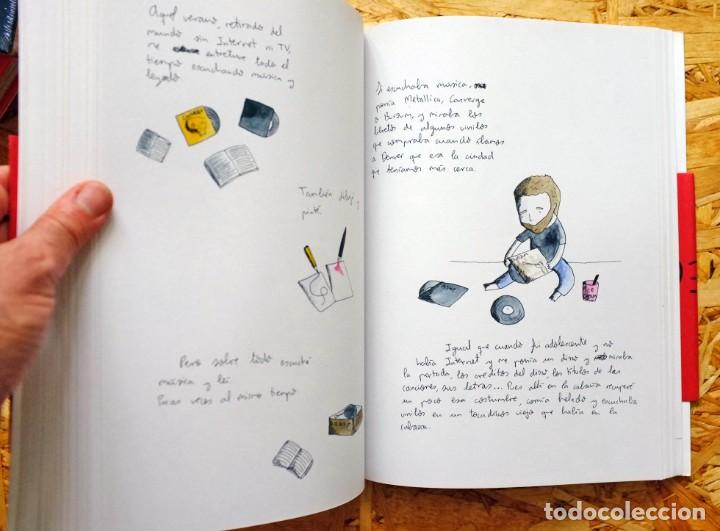 Aquel verano, retirado del
mundo sin Internet ni TV,
me entretuve todo el
tiempo escuchando música y
leyendo
También dibujé y
pinté.
Pero sobre todo escuché
música y leí.
Pocas veces al mismo tiempo
Si escuchaba música,
ponía Metallica, Converge
o Burzum, y miraba los
libretos de algunos vinilos
que compraba cuando íbamos
a Denver que era la ciudad
que teníamos más cerca.
ICE
CREAM
Igual que cuando fui adolescente y no
había Internet y me ponía un disco y miraba
la portada, los créditos del disco, los títulos de las
canciones, sus letras... Pues allí en la cabaña recuperé
un poco esa costumbre, comía helado y escuchaba
vinilos en un tocadiscos viejo que había en la
cabaña.
todocoleccion